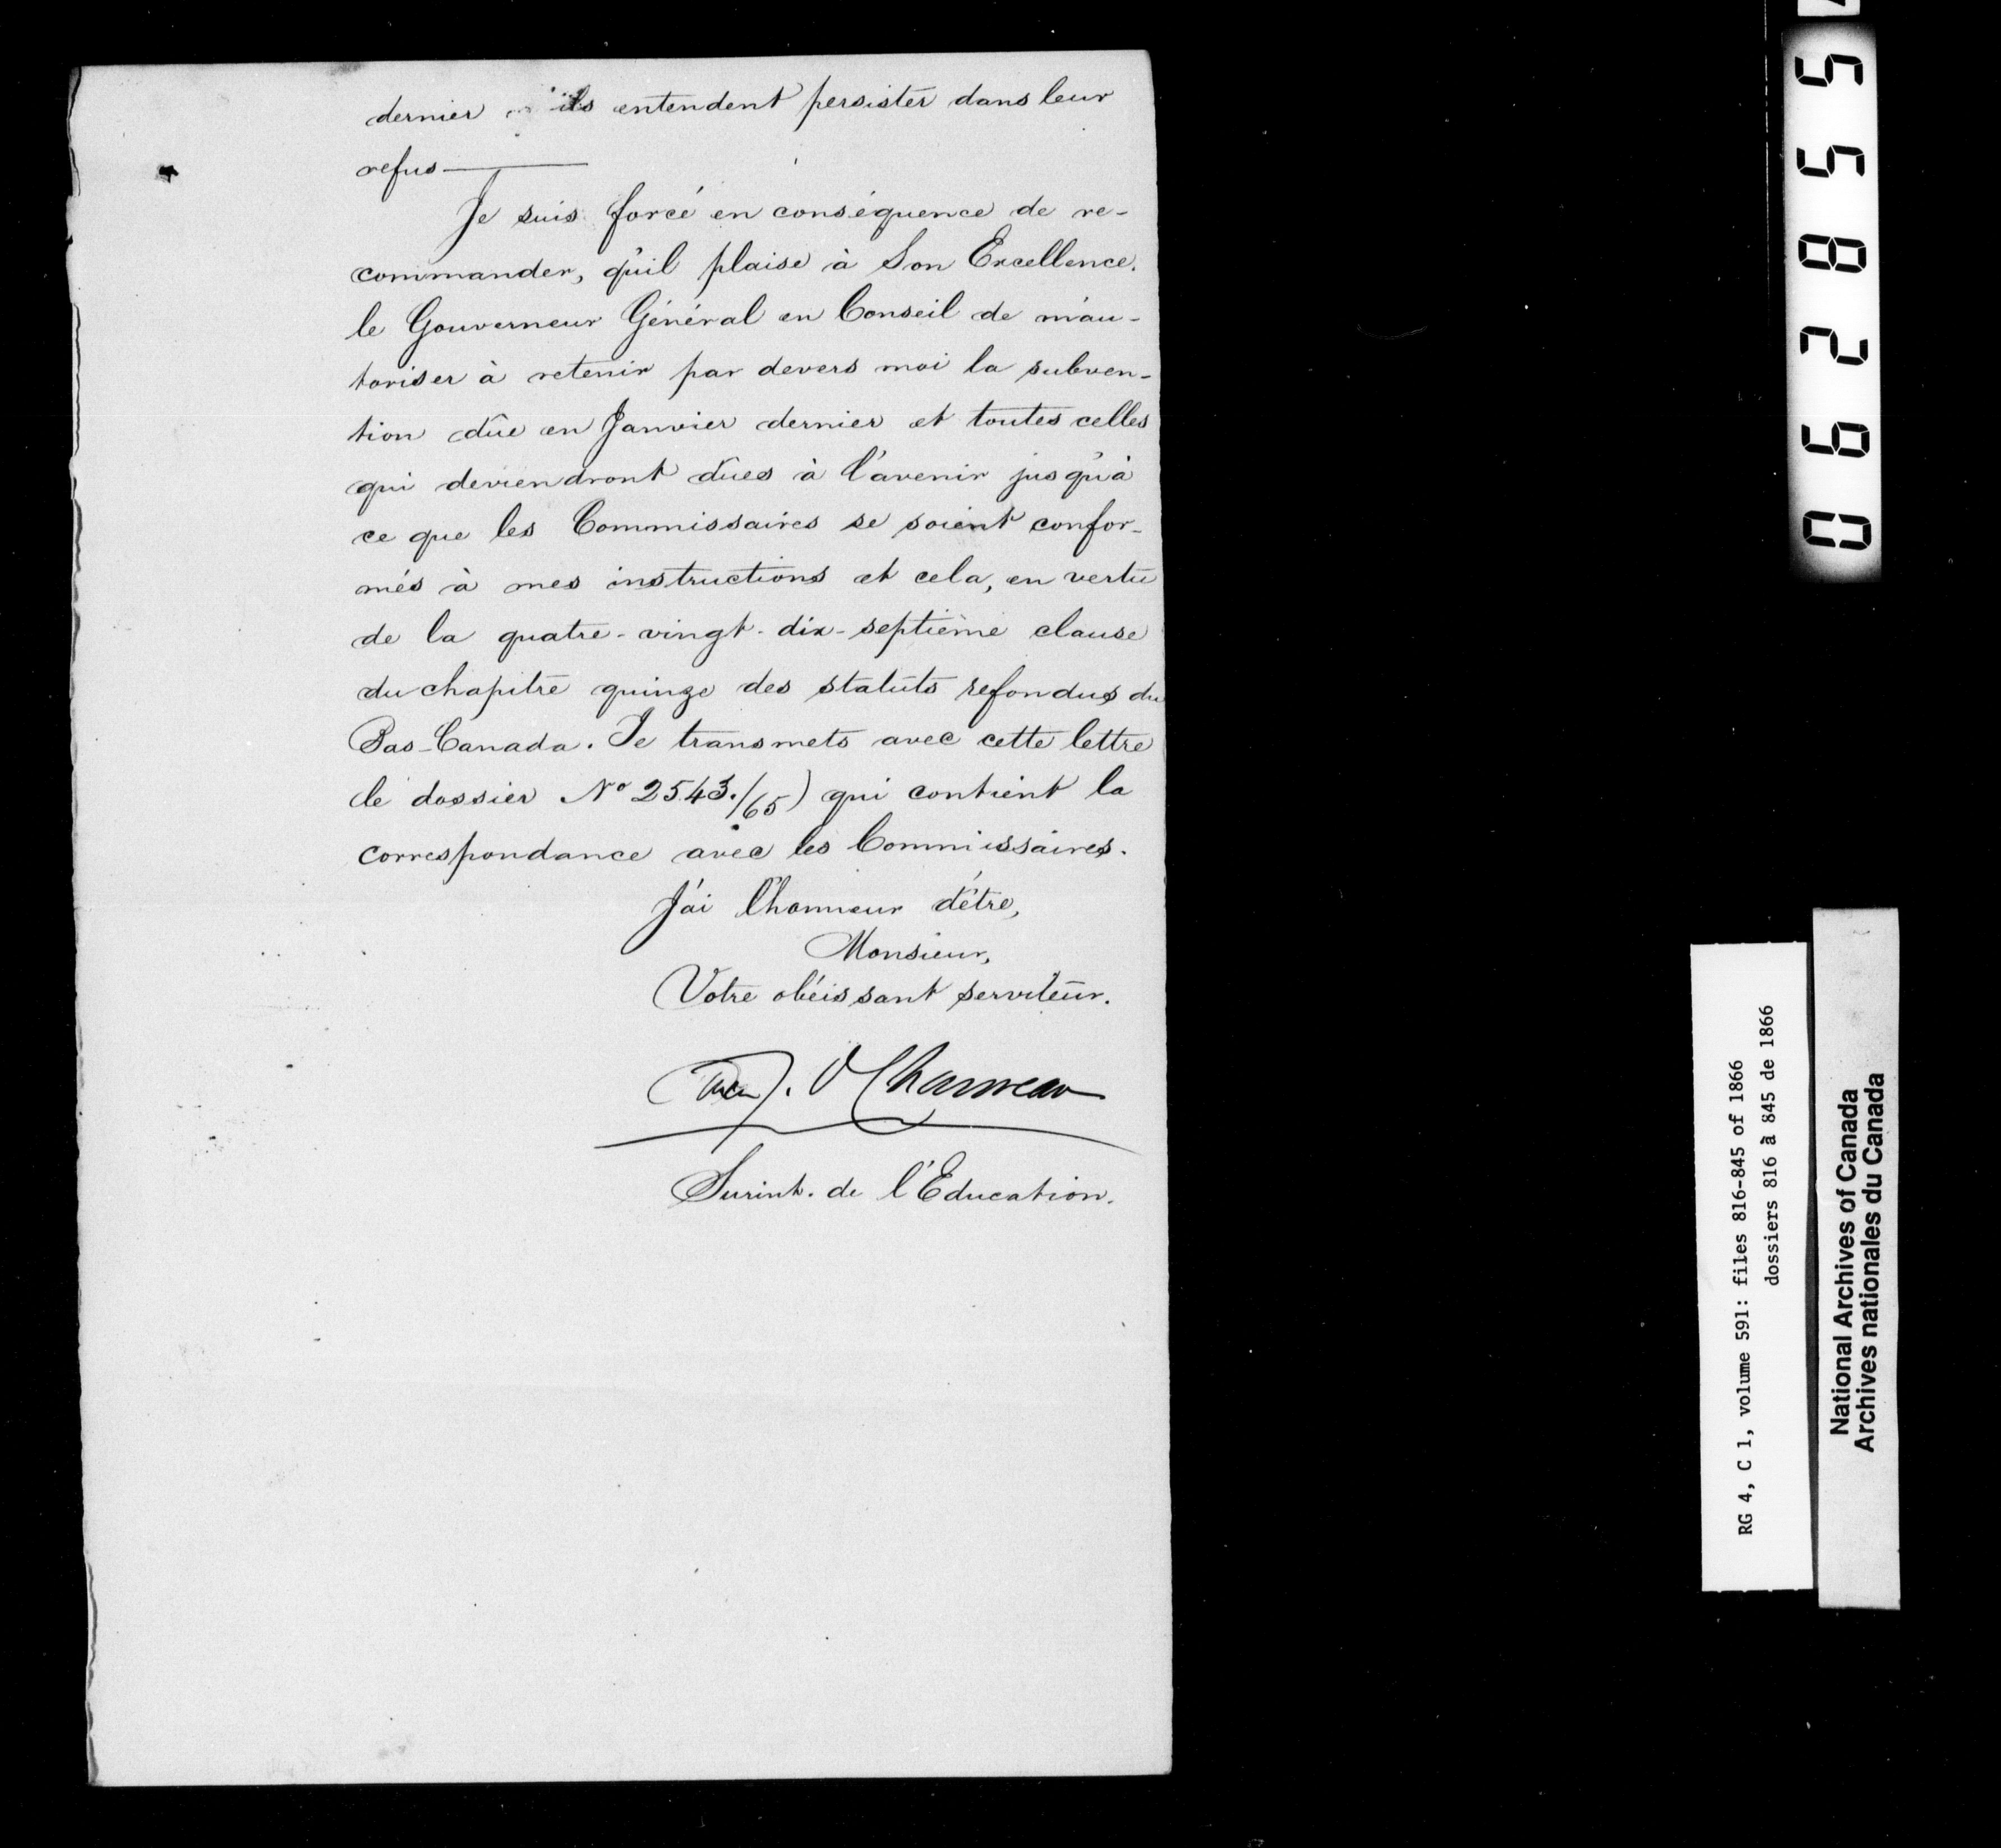 dernier ils entendent persister dans leur
refus
Je suis forcé en conséquence de re-
commander, qu'il plaise à Son Excellence.
le Gouverneur Général en Conseil de m'au-
toriser à retenir par devers moi la subven-
tion dûe en Janvier dernier et toutes celles
qui deviendront dûes à l'avenir jusqu'à
ce que les Commissaires se soient confor-
més à mes instructions et cela, en vertu
de la quatre-vingt-dix-septième clause
du chapitre quinze des statuts refondus du
Bas-Canada. Je transmets avec cette lettre
le dossier No 2543./65) qui contient la
correspondance avec les Commissaires.
J'ai l'honneur d'être,
Monsieur,
Votre obéissant serviteur.
J. O Chauveau
Surint. de l'Education.
062855
RG 4, C 1, volume 591: files 816-845 of 1866
dossiers 816 à 845 de 1866
National Archives of Canada
Archives nationales du Canada